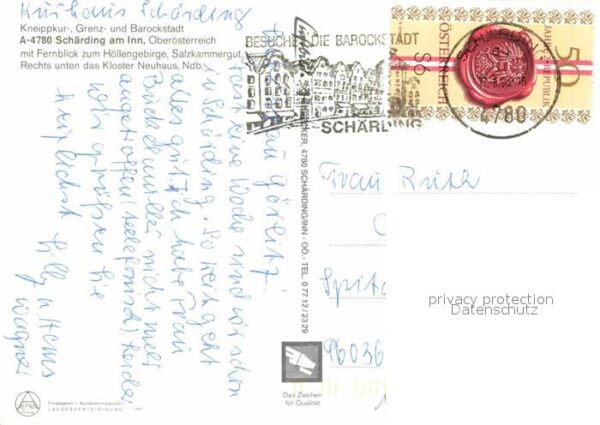 Kurhaus Schärding
Kneippkur-, Grenz- und Barockstadt
A-4780 Schärding am Inn, Oberösterreich
mit Fernblick zum Höllengebirge, Salzkammergut,
Rechts unten das Kloster Neuhaus, Ndb.
Frau Görlitz!
Fast eine Woche sind wir schon
in Schärding. So weit geht
alles gut. Ich habe Frau
nicht mehr
angetroffen (telefonisch) leider.
Wir grüßen Sie
herzlichst Lilly u. Hans
Wagner
Eingegangen v. Bundesministerium f.
LANDESVERTEIDIGUNG
4780 SCHÄRDING/INN - OÖ. - TEL. 0 77 12/23 29
Das Zeichen
für Qualität
BESUCHEN DIE BAROCKSTADT
SCHÄRDING
4780
50
JAHRE REPUBLIK
ÖSTERREICH
S6
Frau Ruth
Spita
96036
privacy protection
Datenschutz